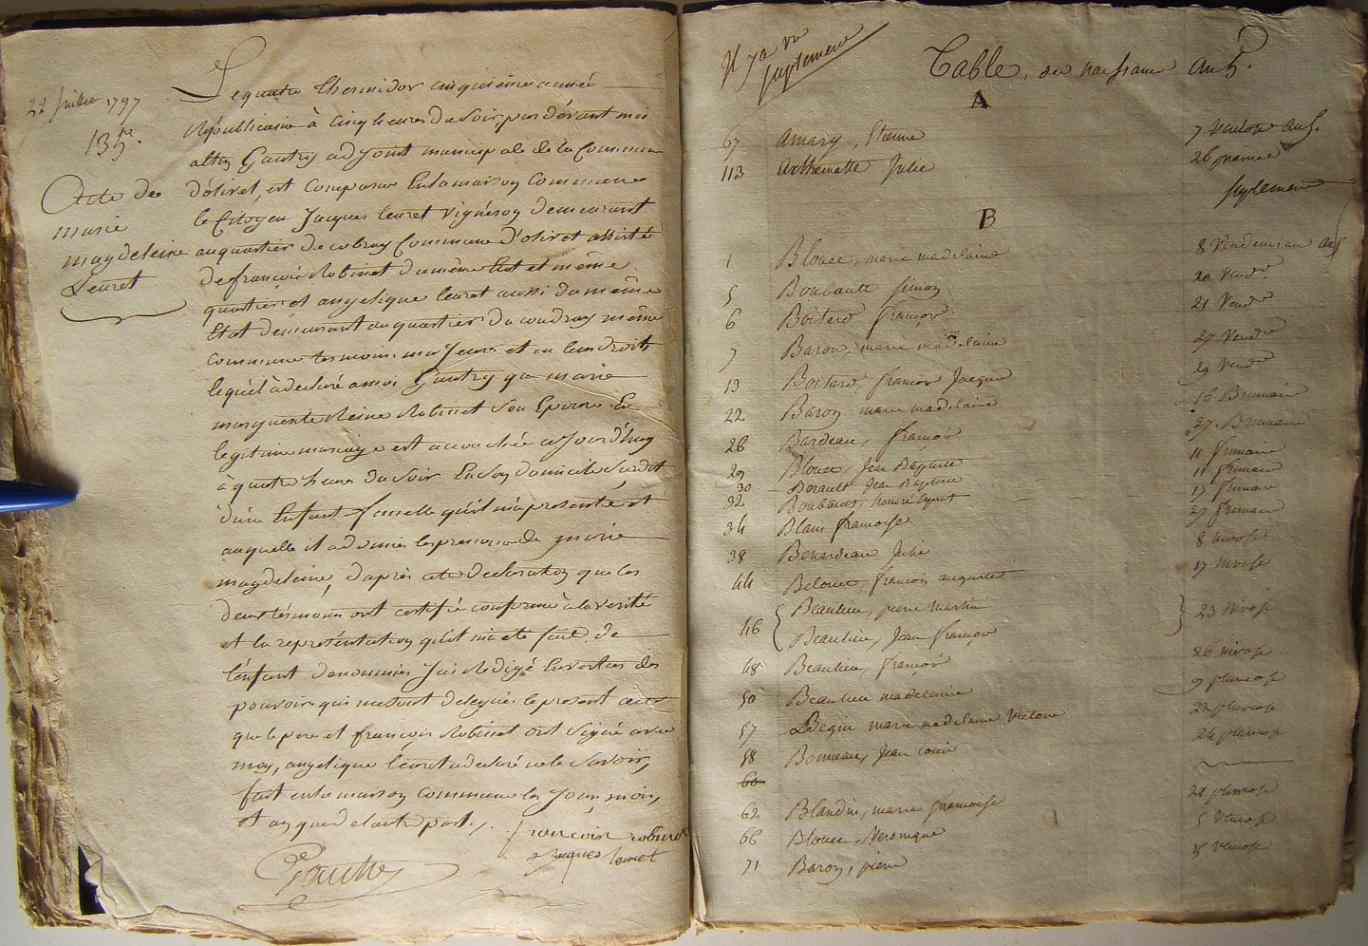 22 Juillet 1797
135e.
Acte de
marie
magdeleine
Leuret
Le quatre Thermidor cinquième année
Républicaine à cinq heures du soir, par dévant moi
Gautry adjoint municipale de la Commune
d'olivet, est comparu En la maison commune
le Citoyen Jacques leuret vignéron demeurant
au quartier de Commune d'olivet assisté
de françois Robinet du même Etat et même
quartier et angelique leuret aussi du même
Etat démeurant au quartier du coudray même
commune temoins majeurs et en leurs droits
lequel à déclaré a moi Gautry que marie
marguerite Reine Robinet son Epouse En
legitime mariage est accouchée aujourd'huy
à quatre heures du soir En son domicile susdit
d'un Enfant femelle qu'il m'a présenté et
auquelle il a donné les prenoms de marie
magdeleine, d'après cette declaration que les
deux témoins ont certifié conforme à la vérité
et la représentation qu'il m'a eté faite de
l'énfant denommé J'ai Rédigé En vertu des
pouvoirs qui me sont delegués le present acte
que le pere et françois Robinet ont Signé avec
moy, angelique leuret a declaré ne le Savoir,
fait en la maison commune les Jour, mois,
et an que d'autre part.
françois robinet
Jacques leuret
Gautry
Il y a un
suplement
Table des naissances An 5.
A
67 Amary, Etienne 7 ventose an 5.
113 Julie 26 prairial
suplement
B
1 Blouet, marie madelaine 8 Vendemiaire an 5
5 Boubault Simon 20 Vendre
6 Boitard françois 21 Vendre
7 Baron, marie madelaine 27 Vendre
13 Boitard, françois Jacques 29 Vendre
22 Baron marie madelaine 16 Brumaire
26 Bardeau, françois 27 Brumaire
29 Blouet, Jean Baptiste 11 frimaire
30 Berault Jean Baptiste 11 frimaire
32 Boubault, honoré 17 frimaire
34 Blain françoise 27 frimaire
38 Benardeau Julie 8 nivose
44 Belouet, françois auguste 17 nivose
46 Beaulieu, pierre Martin 23 nivose
Beaulieu, Jean françois
48 Beaulieu, françois 26 nivose
50 Beaulieu madelaine 9 pluviose
57 Begin marie madelaine Victoire 22 pluviose
58 Bonneau, Jean Louis 24 pluviose
60
62 Blandin, marie françoise 24 pluviose
66 Blouet, Veronique 5 Ventose
71 Baron, pierre 15 ventose